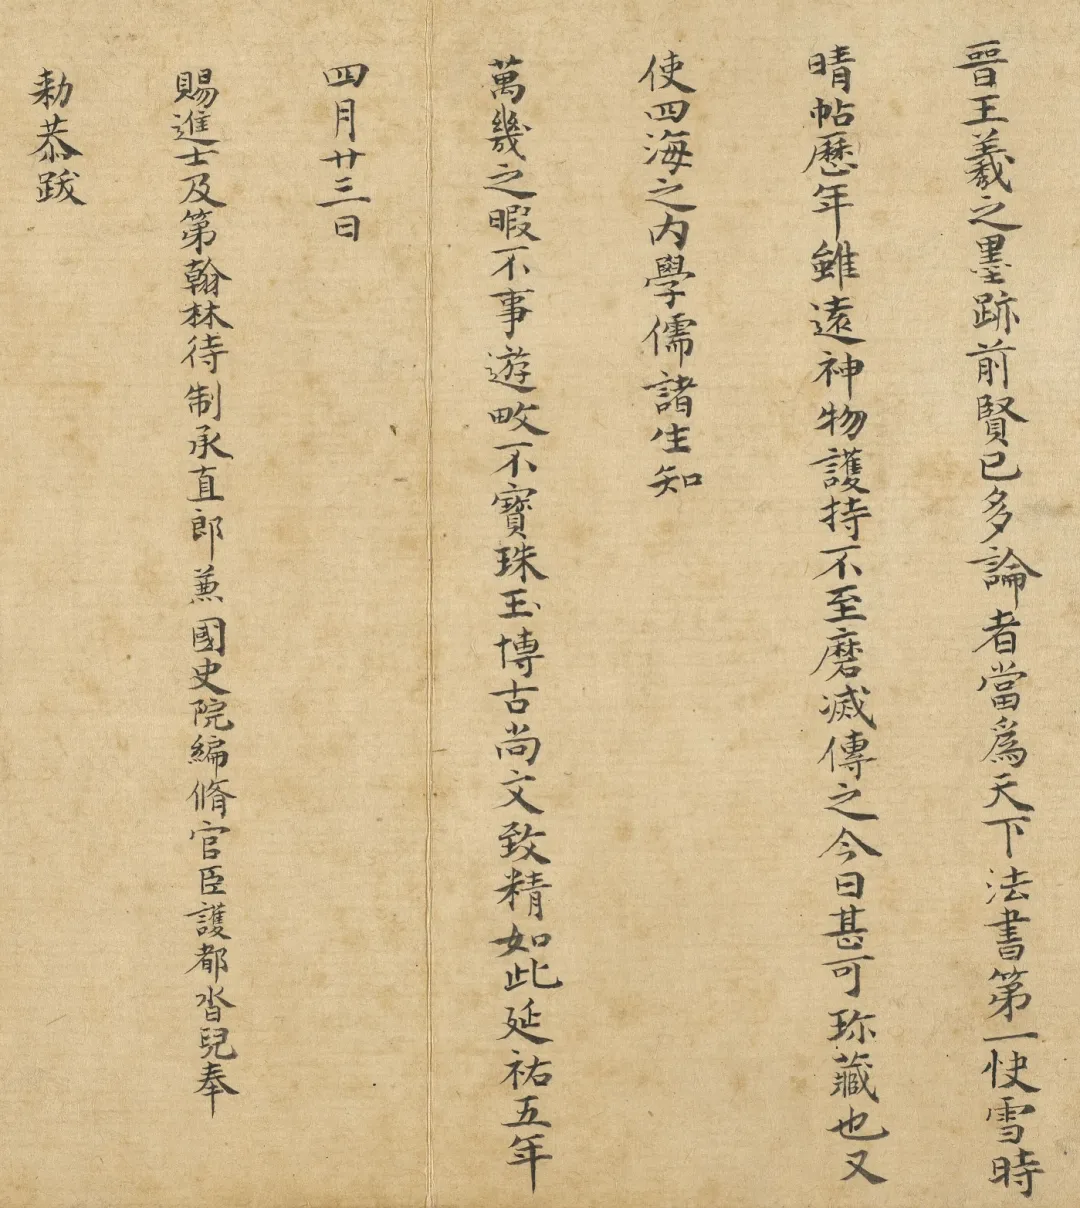 晉王羲之墨跡前賢已多論者當為天下法書第一快雪時
晴帖歷年雖遠神物護持不至磨滅傳之今日甚可珎藏也又
使四海之內學儒諸生知
萬幾之暇不事遊畋不寶珠玉博古尚文致精如此延祐五年
四月廿三日
賜進士及第翰林待制承直郎兼國史院編脩官臣護都沓兒奉
勑恭跋